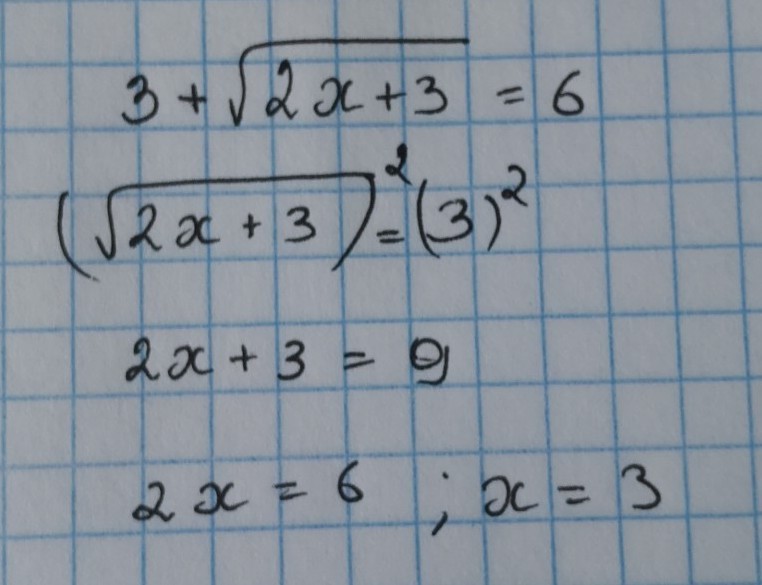 3 + √(2x + 3) = 6
(√(2x + 3))² = (3)²
2x + 3 = 9
2x = 6 ; x = 3